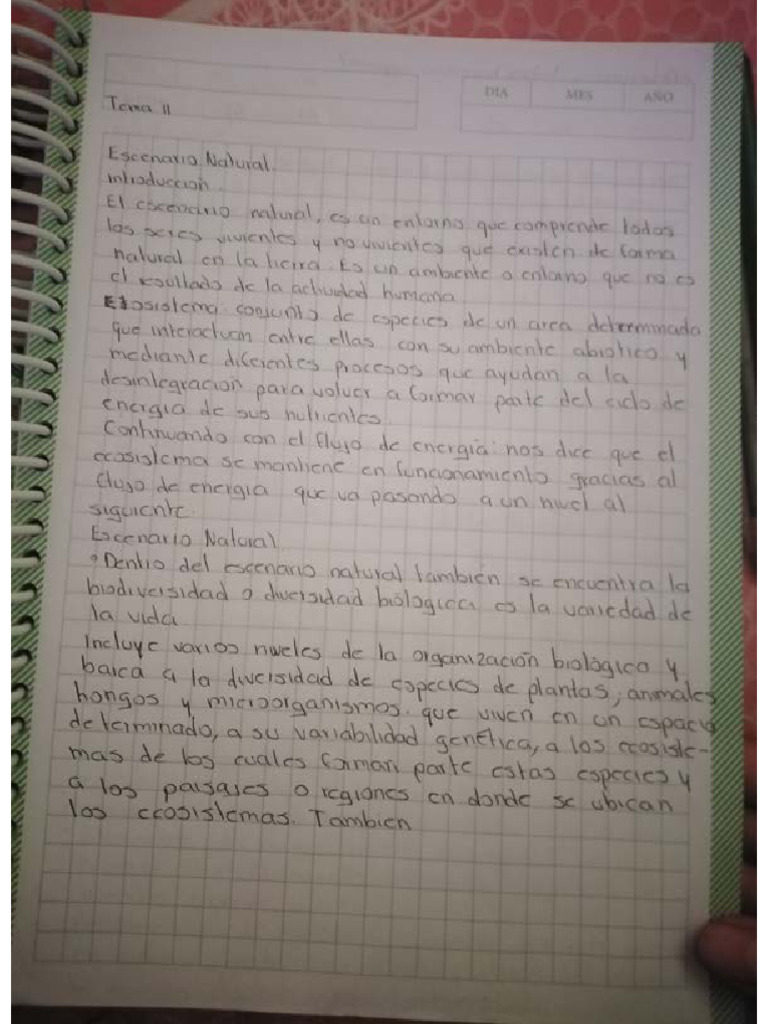 DIA MES AÑO
Tema 11
Escenario Natural
introduccion.
El escenario natural, es un entorno que comprende todos
los seres vivientes y no vivientes que existen de forma
natural en la tierra. Es un ambiente o entorno que no es
el resultado de la actividad humana
Ecosistema conjunto de especies de un area determinada
que interactuan entre ellas con su ambiente abiotico y
mediante diferentes procesos que ayudan a la
desintegracion para volver a formar parte del ciclo de
energia de sus nutrientes.
Continuando con el flujo de energia nos dice que el
ecosistema se mantiene en funcionamiento gracias al
flujo de energia que va pasando a un nivel al
siguiente.
Escenario Natural
• Dentro del escenario natural tambien se encuentra la
biodiversidad o diversidad biologica es la variedad de
la vida
Incluye varios niveles de la organización biológica y
barca a la diversidad de especies de plantas, animales
hongos y microorganismos que viven en un espacio
determinado, a su variabilidad genética, a los ecosiste-
mas de los cuales forman parte estas especies y
a los paisajes o regiones en donde se ubican
los ecosistemas. Tambien